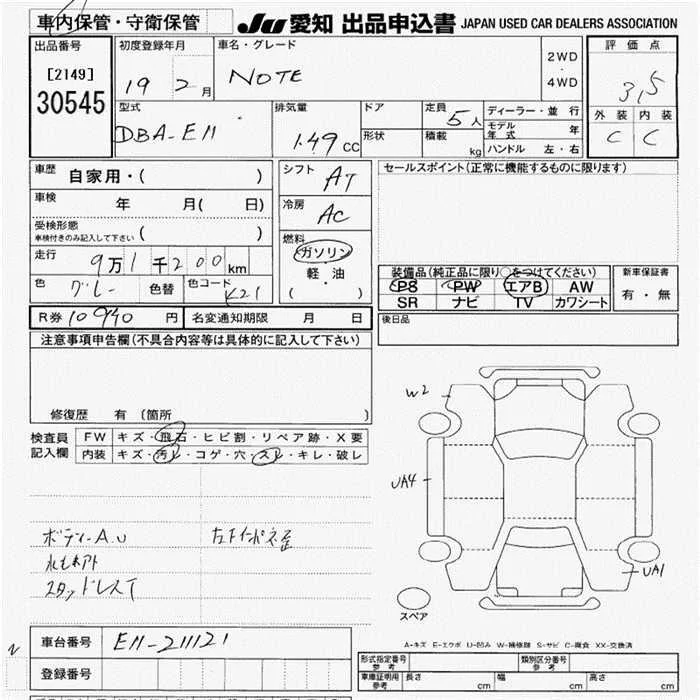 車内保管・守衛保管
JU 愛知 出品申込書 JAPAN USED CAR DEALERS ASSOCIATION
出品番号
[2149]
30545
初度登録年月
19 2 月
車名・グレード
NOTE
2WD
・
4WD
評価点
3.5
外装 内装
C C
型式
DBA-E11
排気量
1.49 CC
ドア
形状
定員
5 人
積載
kg
ディーラー・並行
モデル年式 年
ハンドル 左・右
車歴
自家用・( )
車検 年 月( 日)
受検形態
車検付きのみ記入して下さい ( )
走行
9万1千200 km
色
グレー
色替
色コード
K21
シフト
AT
冷房
AC
燃料
ガソリン
・
軽・油
( )
セールスポイント(正常に機能するものに限ります)
装備品(純正品に限り○をつけてください)
PS PW エアB AW
SR ナビ TV カワシート
新車保証書
有・無
R券 10940 円
名変通知期限 月 日
後日品
注意事項申告欄(不具合内容等は具体的に記入して下さい)
修復歴 有 (箇所 )
検査員
記入欄
FW キズ・飛石・ヒビ割・リペア跡・X要
内装 キズ・汚レ・コゲ・穴・スレ・キレ・破レ
ボディーA.U
左下インパネ歪
スタッドレスT
W2
UA4
UA1
スペア
A-キズ E-エクボ U-凹み W-補修跡 S-サビ C-腐食 XX-交換済
車台番号 E11-211121
登録番号
形式指定番号
参考
類別区分番号
参考
車庫証明用
参考
長さ cm
幅 cm
高さ cm